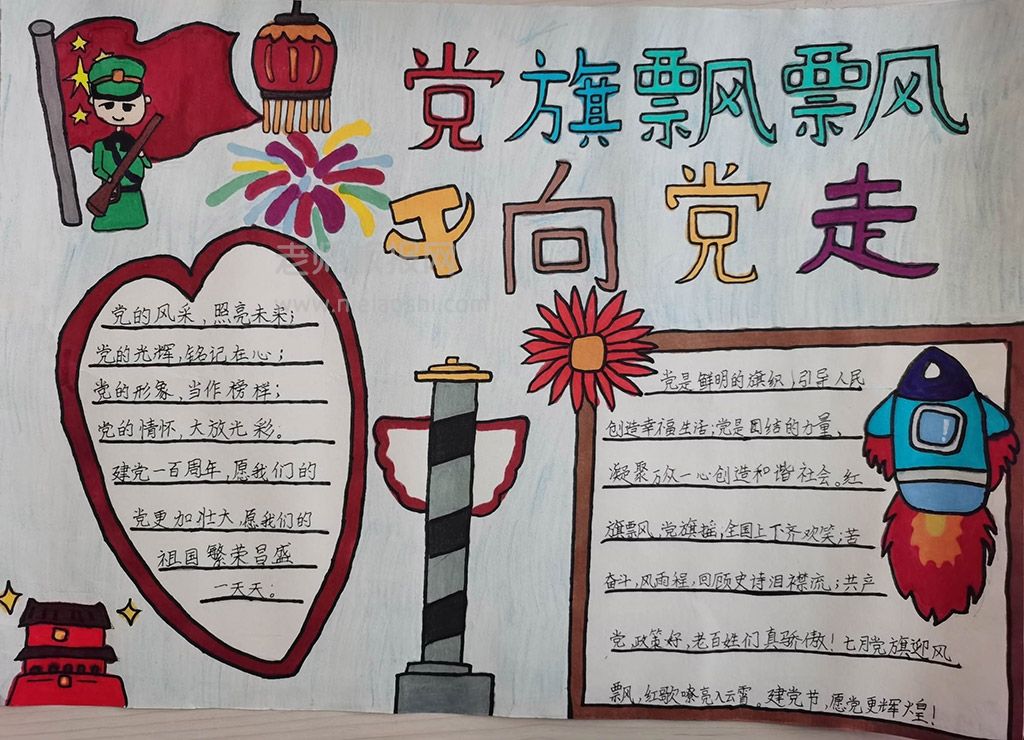 党旗飘飘
向党走
党的风采，照亮未来；
党的光辉，铭记在心；
党的形象，当作榜样；
党的情怀，大放光彩。
建党一百周年，愿我们的
党更加壮大，愿我们的
祖国繁荣昌盛
一天天。
党是鲜明的旗织，引导人民
创造幸福生活；党是团结的力量、
凝聚万众一心创造和谐社会。红
旗飘风，党旗摇，全国上下齐欢笑；苦
奋斗，风雨程，回顾史诗泪襟流；共产
党，政策好，老百姓们真骄傲！七月党旗迎风
飘，红歌嘹亮入云霄。建党节，愿党更辉煌！
www.meiaoshi.com